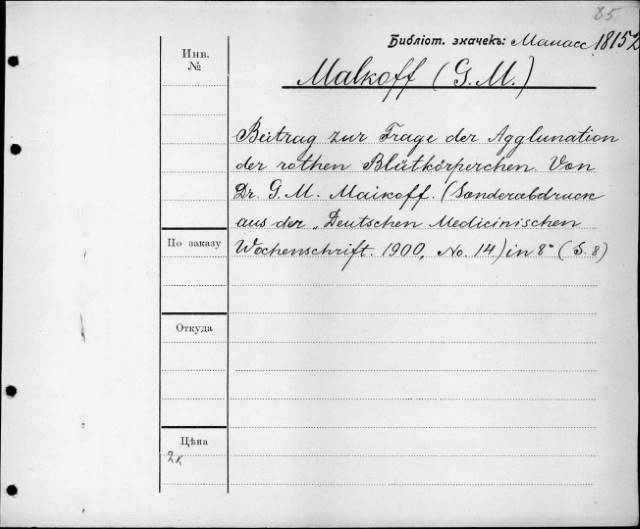 85
Библіот. значекъ: Манасс 18152
Инв. №
Malkoff (G. M.)
Beitrag zur Frage der Agglunation
der rothen Blütkörperchen. Von
Dr. G. M. Maikoff. (Sonderabdruck
aus der „Deutschen Medicinischen
По заказу
Wochenschrift. 1900, No. 14) in 8° (S. 8)
Откуда
Цѣна
2к